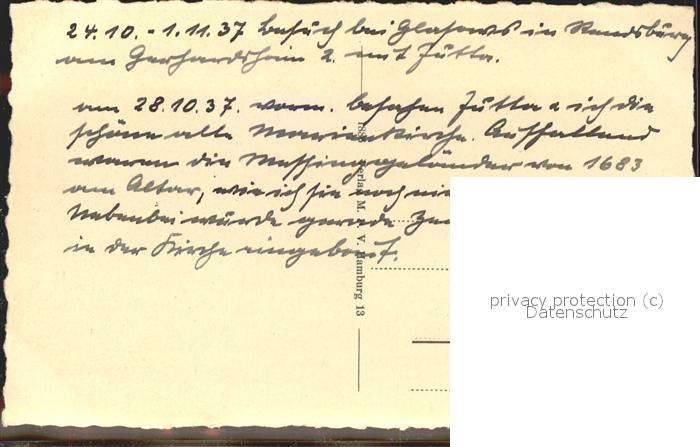 24.10. - 1.11.37 Besuch bei Glasows in Rendsburg
am Gerhardshain 2. mit Jutta.
am 28.10.37. vorm. besahen Jutta u. ich die
schöne alte Marienkirche. Auffallend
waren die Messinggeländer von 1683
am Altar, wie ich sie noch nie
Nebenbei wurde gerade
in der Kirche eingebaut.
Verlag M. V. Hamburg 13
privacy protection (c)
Datenschutz